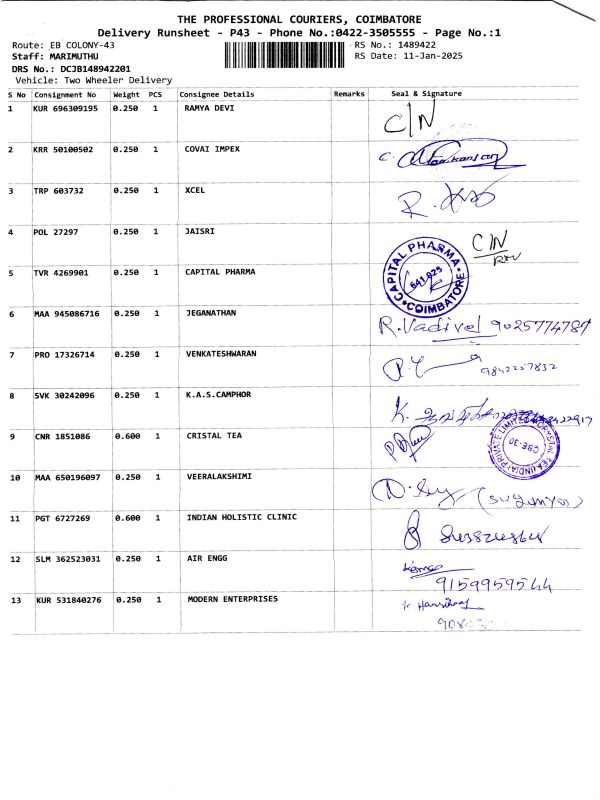 THE PROFESSIONAL COURIERS, COIMBATORE
Delivery Runsheet - P43 - Phone No.:0422-3505555 - Page No.:1
Route: EB COLONY-43 RS No.: 1489422
Staff: MARIMUTHU RS Date: 11-Jan-2025
DRS No.: DCJB148942201
Vehicle: Two Wheeler Delivery
S No Consignment No Weight PCS Consignee Details Remarks Seal & Signature
1 KUR 696309195 0.250 1 RAMYA DEVI C/N
2 KRR 50100502 0.250 1 COVAI IMPEX
3 TRP 603732 0.250 1 XCEL R.
4 POL 27297 0.250 1 JAISRI C/N
5 TVR 4269901 0.250 1 CAPITAL PHARMA CAPITAL PHARMA 641 025 COIMBATORE
6 MAA 945086716 0.250 1 JEGANATHAN R.Vadivel 9025774787
7 PRO 17326714 0.250 1 VENKATESHWARAN 9842257832
8 SVK 30242096 0.250 1 K.A.S.CAMPHOR K.
9 CNR 1851086 0.600 1 CRISTAL TEA CRYSTAL TEA (INDIA) PRIVATE LIMITED CBE-30
10 MAA 650196097 0.250 1 VEERALAKSHIMI
11 PGT 6727269 0.600 1 INDIAN HOLISTIC CLINIC
12 SLM 362523031 0.250 1 AIR ENGG 9159959544
13 KUR 531840276 0.250 1 MODERN ENTERPRISES